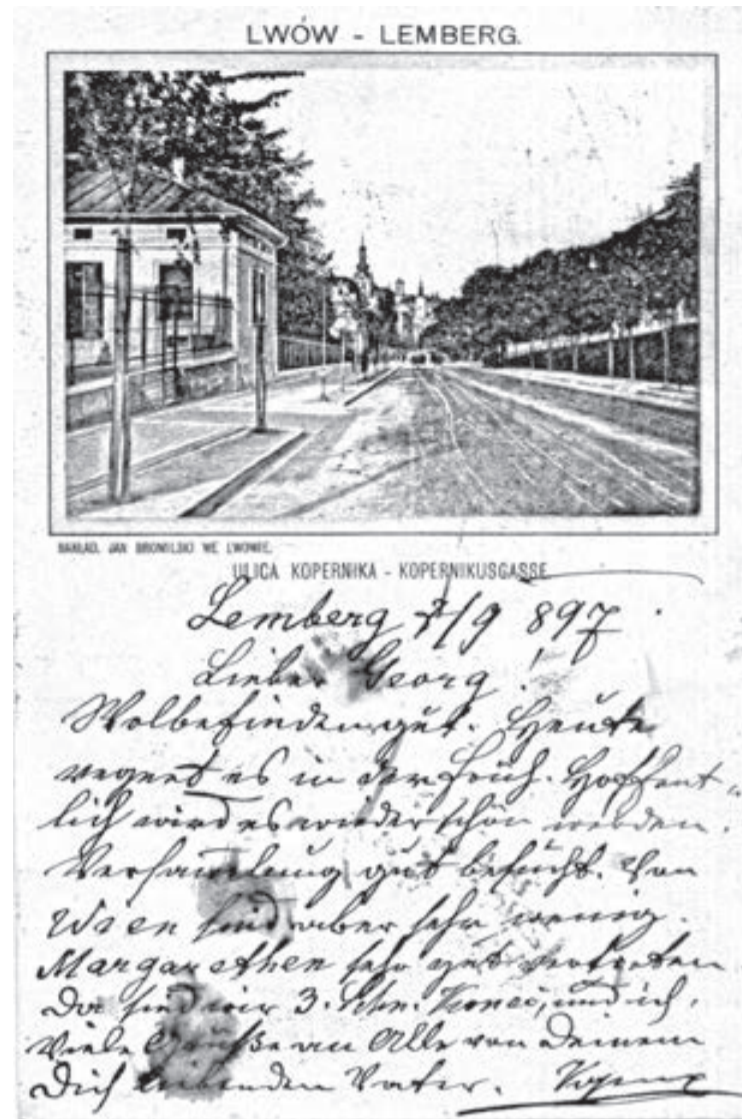 LWÓW - LEMBERG.
NAKŁAD. JAN BROMILSKI WE LWOWIE.
ULICA KOPERNIKA - KOPERNIKUSGASSE
Lemberg 7/9 897.
Lieber Georg!
Wolbefinden gut. Heute
regnet es in der Früh. Hoffent-
lich wird es wieder schön werden.
Versammlung gut besucht. Von
Wien sind aber sehr wenig.
Margarethen sehr gut vertreten
Da sind wir 3. und ich,
Viele Grüße an Alle von Deinem
Dich liebenden Vater.